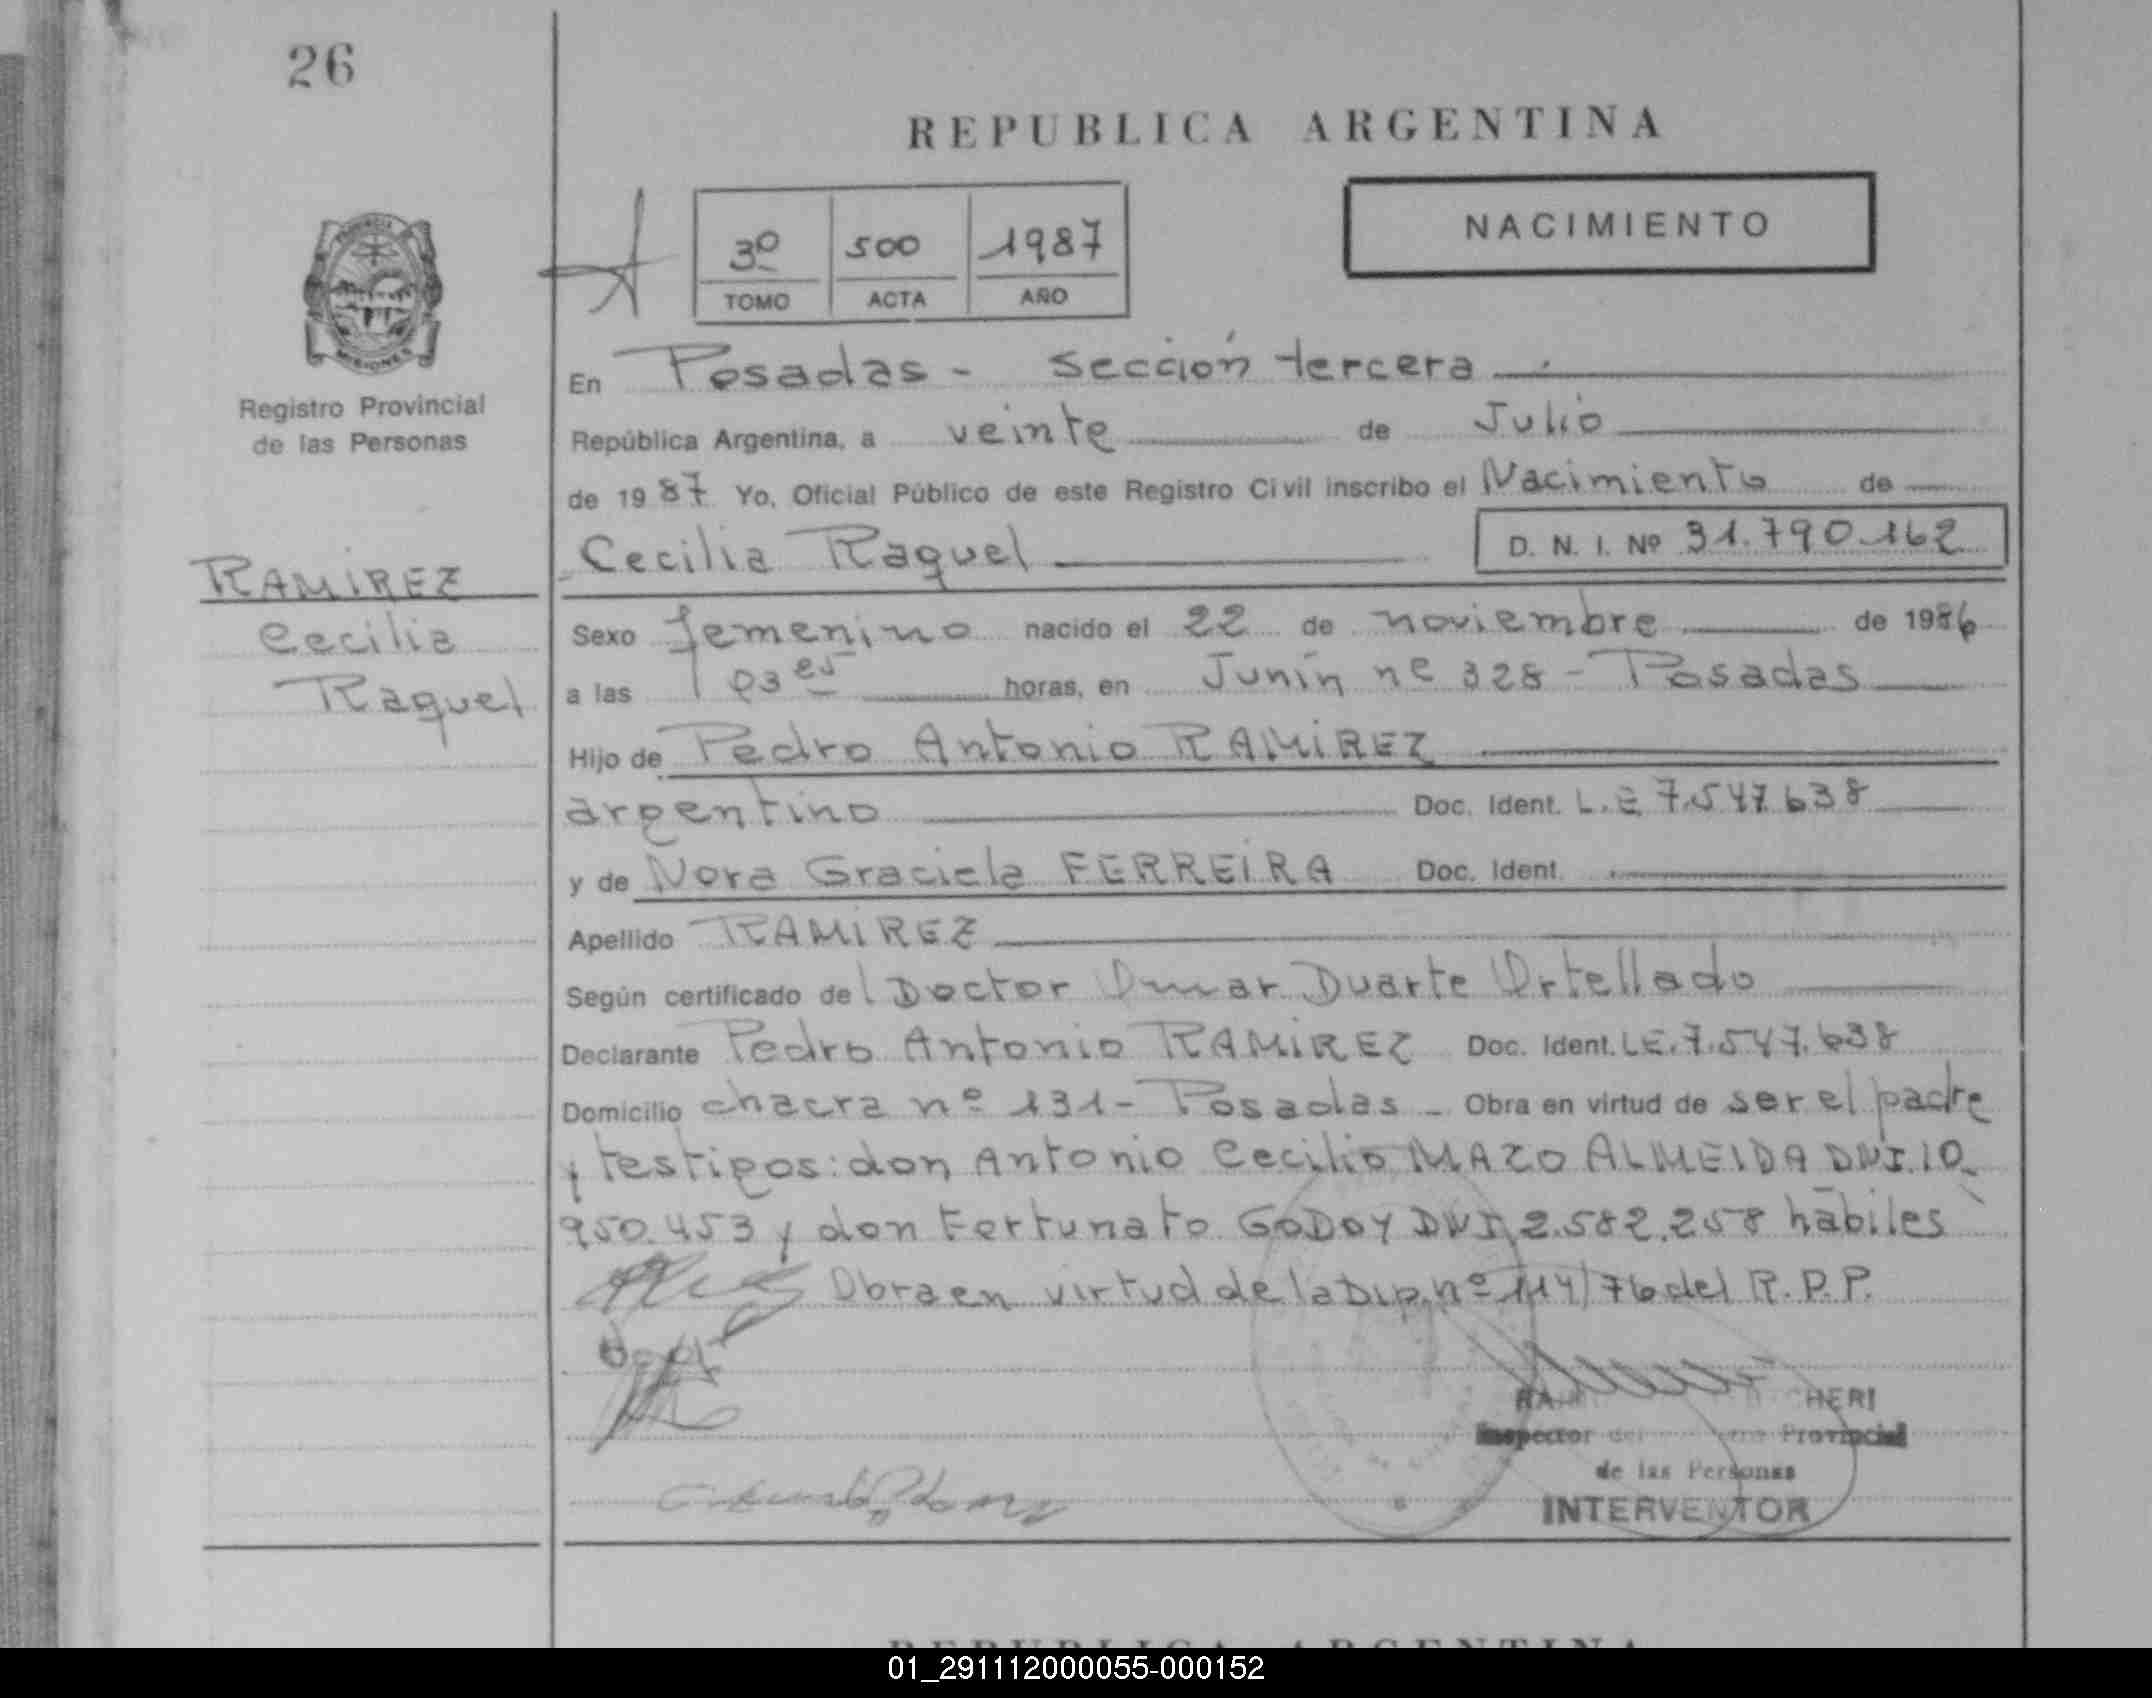 26
REPUBLICA ARGENTINA
3º 500 1987
TOMO ACTA AÑO
NACIMIENTO
MISIONES
Registro Provincial
de las Personas
En Posadas - Sección tercera
República Argentina, a veinte de Julio
de 1987 Yo, Oficial Público de este Registro Civil inscribo el Nacimiento de
Cecilia Raquel D. N. I. Nº 31.790.162
RAMIREZ
Cecilia
Raquel
Sexo femenino nacido el 22 de noviembre de 1986
a las 03 horas, en Junín nº 328 - Posadas
Hijo de Pedro Antonio RAMIREZ
argentino Doc. Ident. L.E 7.547.638
y de Nora Graciela FERREIRA Doc. Ident.
Apellido RAMIREZ
Según certificado del Doctor Omar Duarte Ortellado
Declarante Pedro Antonio RAMIREZ Doc. Ident. LE.7.547.638
Domicilio chacra nº 131 - Posadas - Obra en virtud de ser el padre
y testigos: don Antonio Cecilio MAZO ALMEIDA DNI.10.
950.453 y don Fortunato GODOY DNI 2.582.258 hábiles
Obra en virtud de la Disp. nº 114/76 del R.P.P.
HERI
Inspector del Provincial
de las Personas
INTERVENTOR
REPUBLICA ARGENTINA
01_291112000055-000152